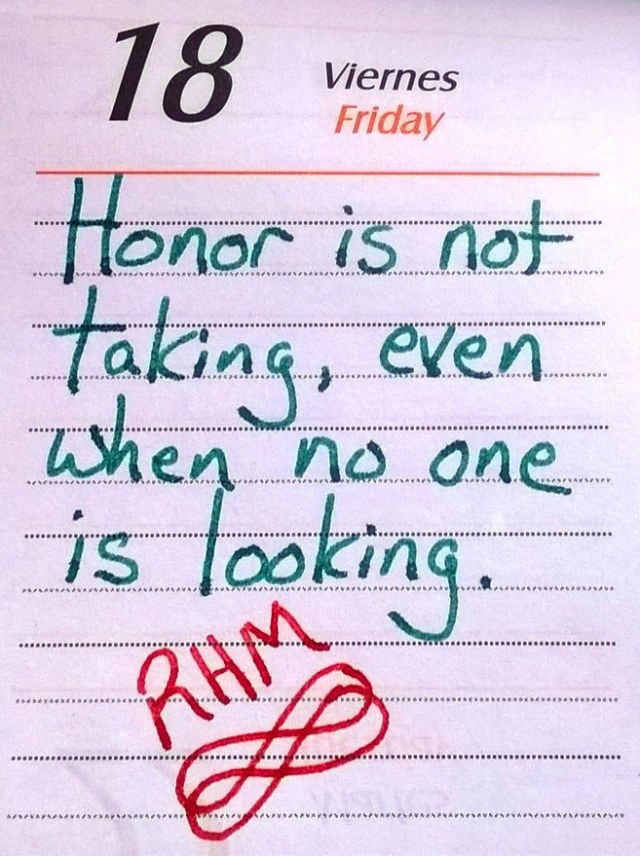 18 Viernes
Friday
Honor is not
taking, even
when no one
is looking.
RHM